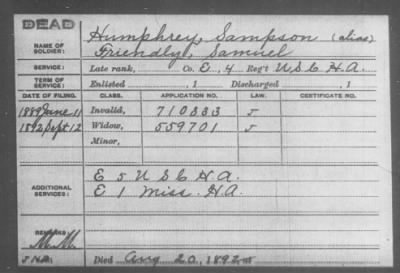 DEAD
NAME OF SOLDIER: Humphrey, Sampson (alias)
Friendly, Samuel
SERVICE: Late rank, Co. E, 4 Reg't U S C H.A.
TERM OF SERVICE: Enlisted , 1 Discharged , 1
DATE OF FILING. CLASS. APPLICATION NO. LAW. CERTIFICATE NO.
1889 June 11 Invalid, 710333
1892 Sept 12 Widow, 559701
Minor,
ADDITIONAL SERVICES: E 5 U S C H.A.
E 1 Miss. H.A.
REMARKS:
Died Aug 20, 1892